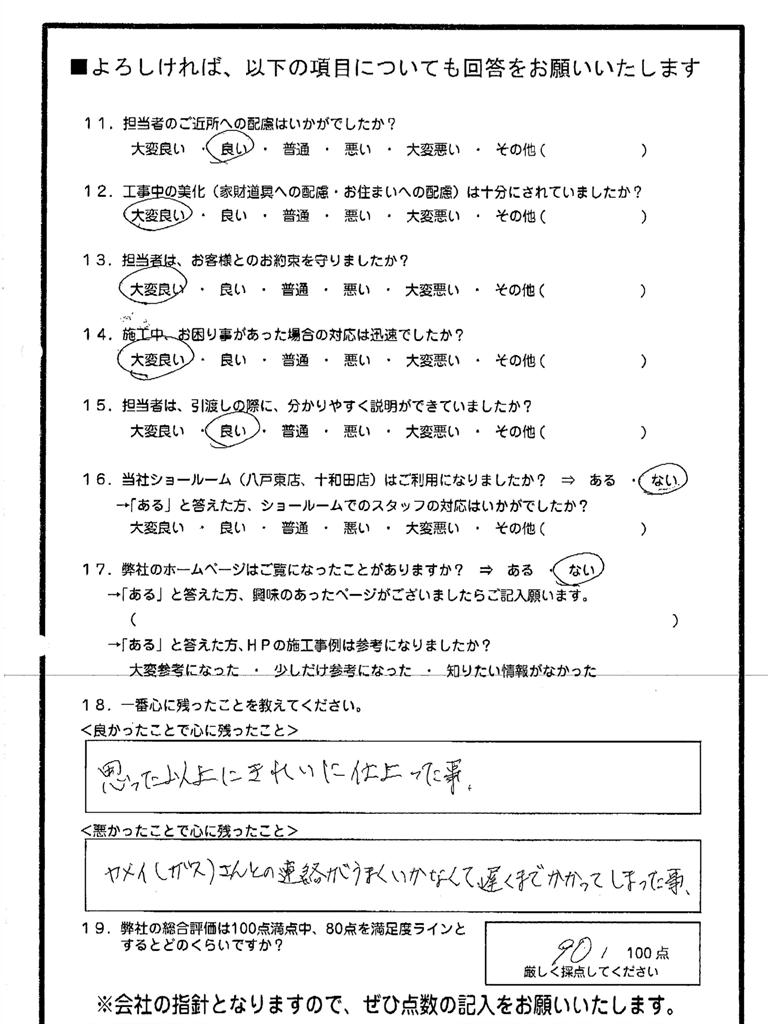 ■よろしければ、以下の項目についても回答をお願いいたします
11．担当者のご近所への配慮はいかがでしたか？
大変良い ・ 良い ・ 普通 ・ 悪い ・ 大変悪い ・ その他（　　　　　）
12．工事中の美化（家財道具への配慮・お住まいへの配慮）は十分にされていましたか？
大変良い ・ 良い ・ 普通 ・ 悪い ・ 大変悪い ・ その他（　　　　　）
13．担当者は、お客様とのお約束を守りましたか？
大変良い ・ 良い ・ 普通 ・ 悪い ・ 大変悪い ・ その他（　　　　　）
14．施工中、お困り事があった場合の対応は迅速でしたか？
大変良い ・ 良い ・ 普通 ・ 悪い ・ 大変悪い ・ その他（　　　　　）
15．担当者は、引渡しの際に、分かりやすく説明ができていましたか？
大変良い ・ 良い ・ 普通 ・ 悪い ・ 大変悪い ・ その他（　　　　　）
16．当社ショールーム（八戸東店、十和田店）はご利用になりましたか？ ⇒ ある ・ ない
→「ある」と答えた方、ショールームでのスタッフの対応はいかがでしたか？
大変良い ・ 良い ・ 普通 ・ 悪い ・ 大変悪い ・ その他（　　　　　）
17．弊社のホームページはご覧になったことがありますか？ ⇒ ある ・ ない
→「ある」と答えた方、興味のあったページがございましたらご記入願います。
（　　　　　）
→「ある」と答えた方、ＨＰの施工事例は参考になりましたか？
大変参考になった ・ 少しだけ参考になった ・ 知りたい情報がなかった
18．一番心に残ったことを教えてください。
＜良かったことで心に残ったこと＞
思った以上にきれいに仕上った事。
＜悪かったことで心に残ったこと＞
カメイ(ガス)さんとの連絡がうまくいかなくて、遅くまでかかってしまった事、
19．弊社の総合評価は100点満点中、80点を満足度ラインと
するとどのくらいですか？
90 / 100点
厳しく採点してください
※会社の指針となりますので、ぜひ点数の記入をお願いいたします。